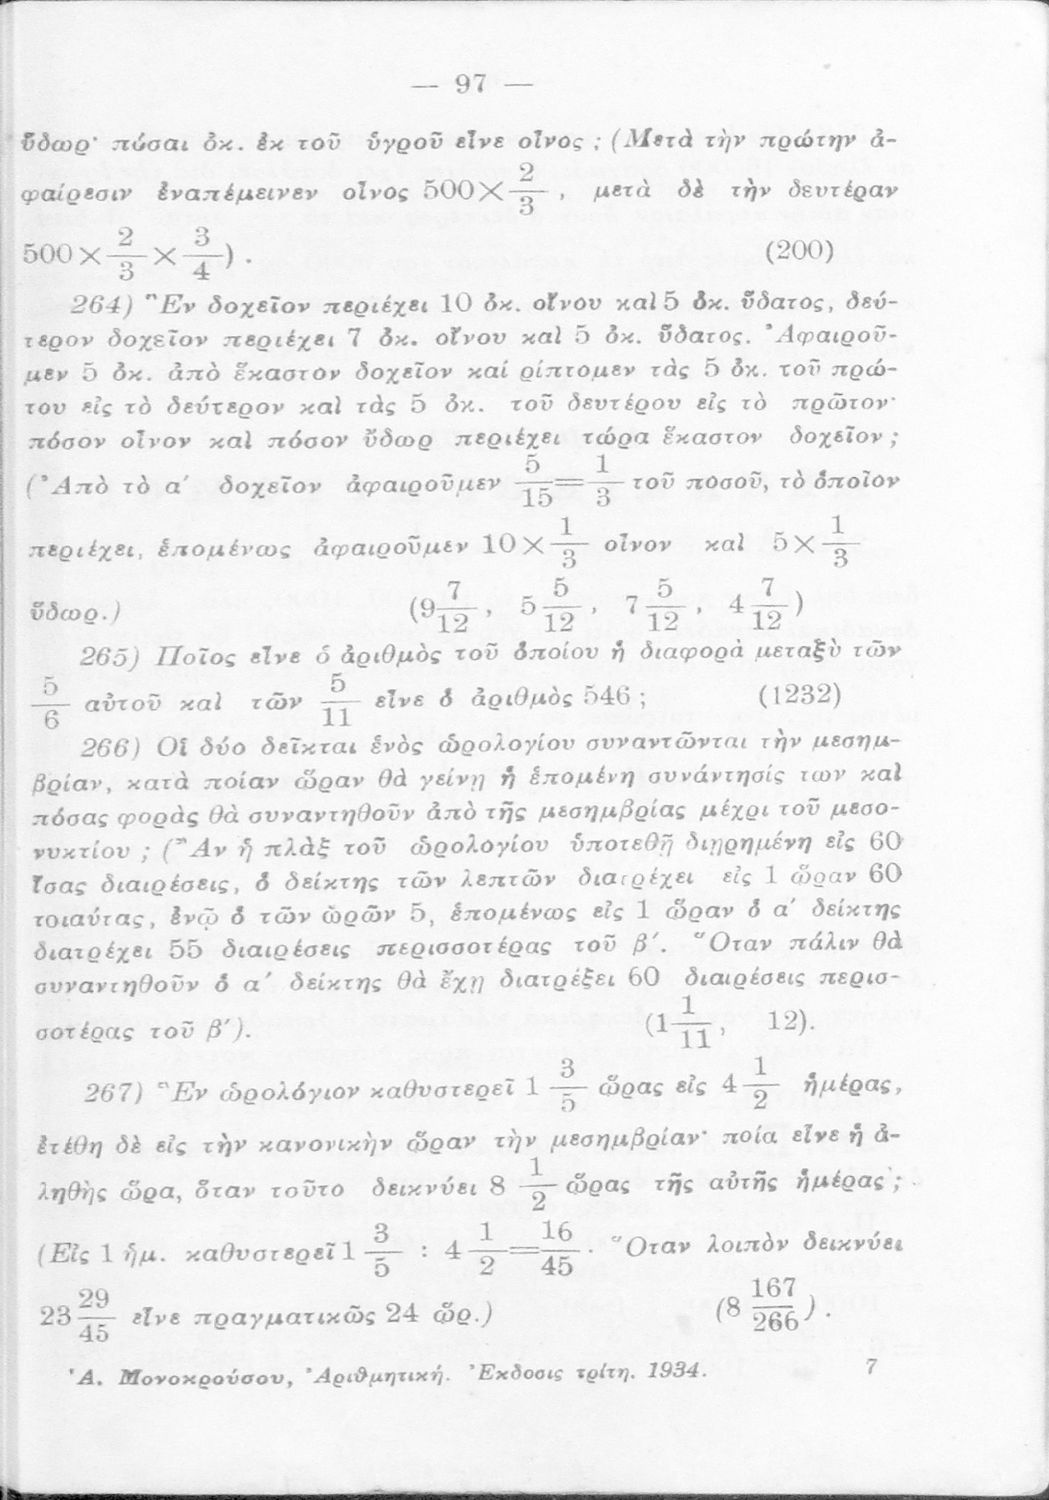 — 97 —
ὕδωρ· πόσαι ὀκ. ἐκ τοῦ ὑγροῦ εἶνε οἶνος ; (Μετὰ τὴν πρώτην ἀ-
φαίρεσιν ἐναπέμεινεν οἶνος 500×2/3 , μετὰ δὲ τὴν δευτέραν
500×2/3×3/4) . (200)
264) Ἓν δοχεῖον περιέχει 10 ὀκ. οἴνου καὶ 5 ὀκ. ὕδατος, δεύ-
τερον δοχεῖον περιέχει 7 ὀκ. οἴνου καὶ 5 ὀκ. ὕδατος. Ἀφαιροῦ-
μεν 5 ὀκ. ἀπὸ ἕκαστον δοχεῖον καί ρίπτομεν τὰς 5 ὀκ. τοῦ πρώ-
του εἰς τὸ δεύτερον καὶ τὰς 5 ὀκ. τοῦ δευτέρου εἰς τὸ πρῶτον·
πόσον οἶνον καὶ πόσον ὕδωρ περιέχει τώρα ἕκαστον δοχεῖον ;
(Ἀπὸ τὸ α΄ δοχεῖον ἀφαιροῦμεν 5/15=1/3 τοῦ ποσοῦ, τὸ ὁποῖον
περιέχει, ἑπομένως ἀφαιροῦμεν 10×1/3 οἶνον καὶ 5×1/3
ὕδωρ.) (9 7/12 , 5 5/12 , 7 5/12 , 4 7/12)
265) Ποῖος εἶνε ὁ ἀριθμὸς τοῦ ὁποίου ἡ διαφορὰ μεταξὺ τῶν
5/6 αὐτοῦ καὶ τῶν 5/11 εἶνε ὁ ἀριθμὸς 546 ; (1232)
266) Οἱ δύο δεῖκται ἑνὸς ὡρολογίου συναντῶνται τὴν μεσημ-
βρίαν, κατὰ ποίαν ὥραν θὰ γείνῃ ἡ ἑπομένη συνάντησίς των καὶ
πόσας φορὰς θὰ συναντηθοῦν ἀπὸ τῆς μεσημβρίας μέχρι τοῦ μεσο-
νυκτίου ; (Ἂν ἡ πλὰξ τοῦ ὡρολογίου ὑποτεθῇ διῃρημένη εἰς 60
ἴσας διαιρέσεις, ὁ δείκτης τῶν λεπτῶν διατρέχει εἰς 1 ὥραν 60
τοιαύτας, ἐνῷ ὁ τῶν ὡρῶν 5, ἑπομένως εἰς 1 ὥραν ὁ α΄ δείκτης
διατρέχει 55 διαιρέσεις περισσοτέρας τοῦ β΄. Ὅταν πάλιν θὰ
συναντηθοῦν ὁ α΄ δείκτης θὰ ἔχῃ διατρέξει 60 διαιρέσεις περισ-
σοτέρας τοῦ β΄). (1 1/11 , 12).
267) Ἓν ὡρολόγιον καθυστερεῖ 1 3/5 ὥρας εἰς 4 1/2 ἡμέρας,
ἐτέθη δὲ εἰς τὴν κανονικὴν ὥραν τὴν μεσημβρίαν· ποία εἶνε ἡ ἀ-
ληθὴς ὥρα, ὅταν τοῦτο δεικνύει 8 1/2 ὥρας τῆς αὐτῆς ἡμέρας ;
(Εἰς 1 ἡμ. καθυστερεῖ 1 3/5 : 4 1/2=16/45 . Ὅταν λοιπὸν δεικνύει
23 29/45 εἶνε πραγματικῶς 24 ὥρ.) (8 167/266) .
Ἀ. Μονοκρούσου, Ἀριθμητική. Ἔκδοσις τρίτη. 1934. 7